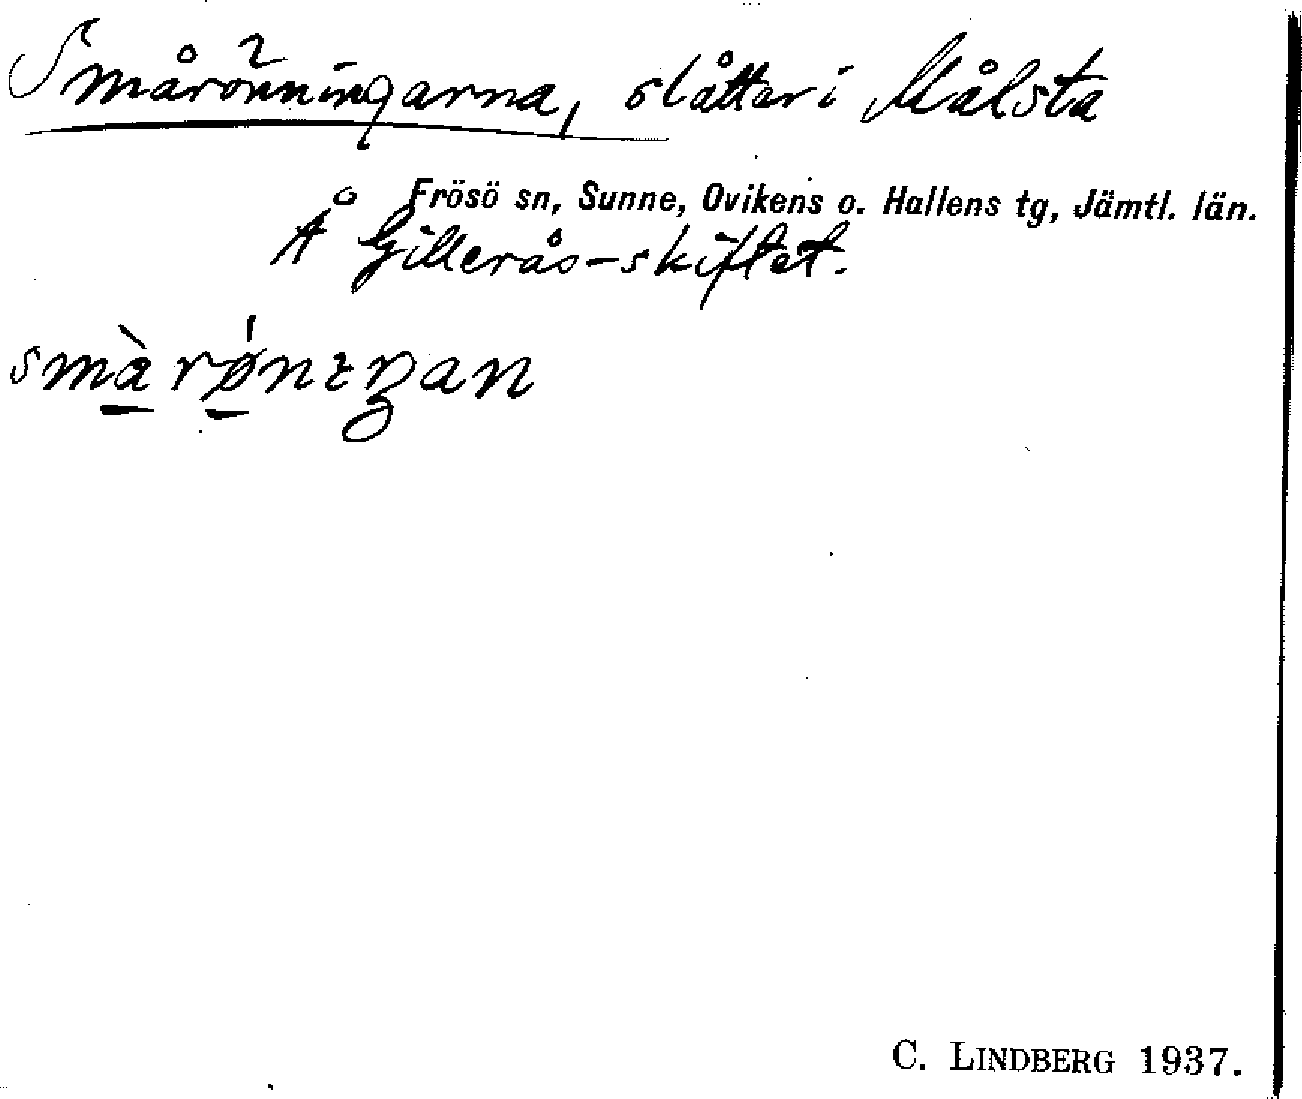 Smårönningarna, slåtter i Målsta
Frösö sn, Sunne, Ovikens o. Hallens tg, Jämtl. län.
Å Gillerås-skiftet.
smà rǿnɩŋan
C. LINDBERG 1937.